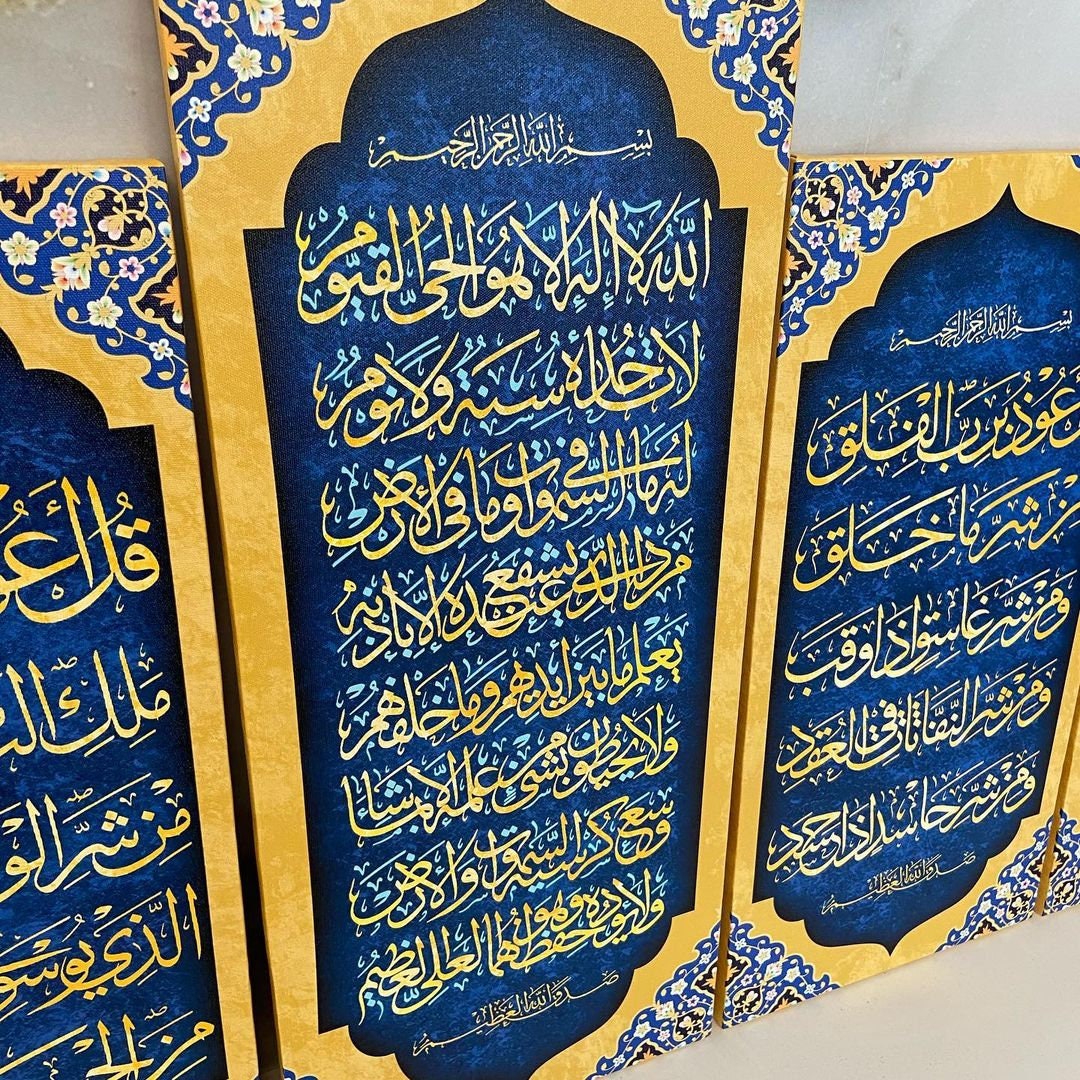 بسم الله الرحمن الرحيم
عوذ برب الفلق
من شر ما خلق
ومن شر غاسق إذا وقب
ومن شر النفاثات في العقد
ومن شر حاسد إذا حسد
صدق الله العظيم
بسم الله الرحمن الرحيم
الله لا إله إلا هو الحي القيوم
لا تأخذه سنة ولا نوم
له ما في السموات وما في الأرض
من ذا الذي يشفع عنده إلا بإذنه
يعلم ما بين أيديهم وما خلفهم
ولا يحيطون بشيء من علمه إلا بما شاء
وسع كرسيه السموات والأرض
ولا يؤده حفظهما وهو العلي العظيم
صدق الله العظيم
قل أعو
ملك
من شر الو
الذي يوسو
من الج